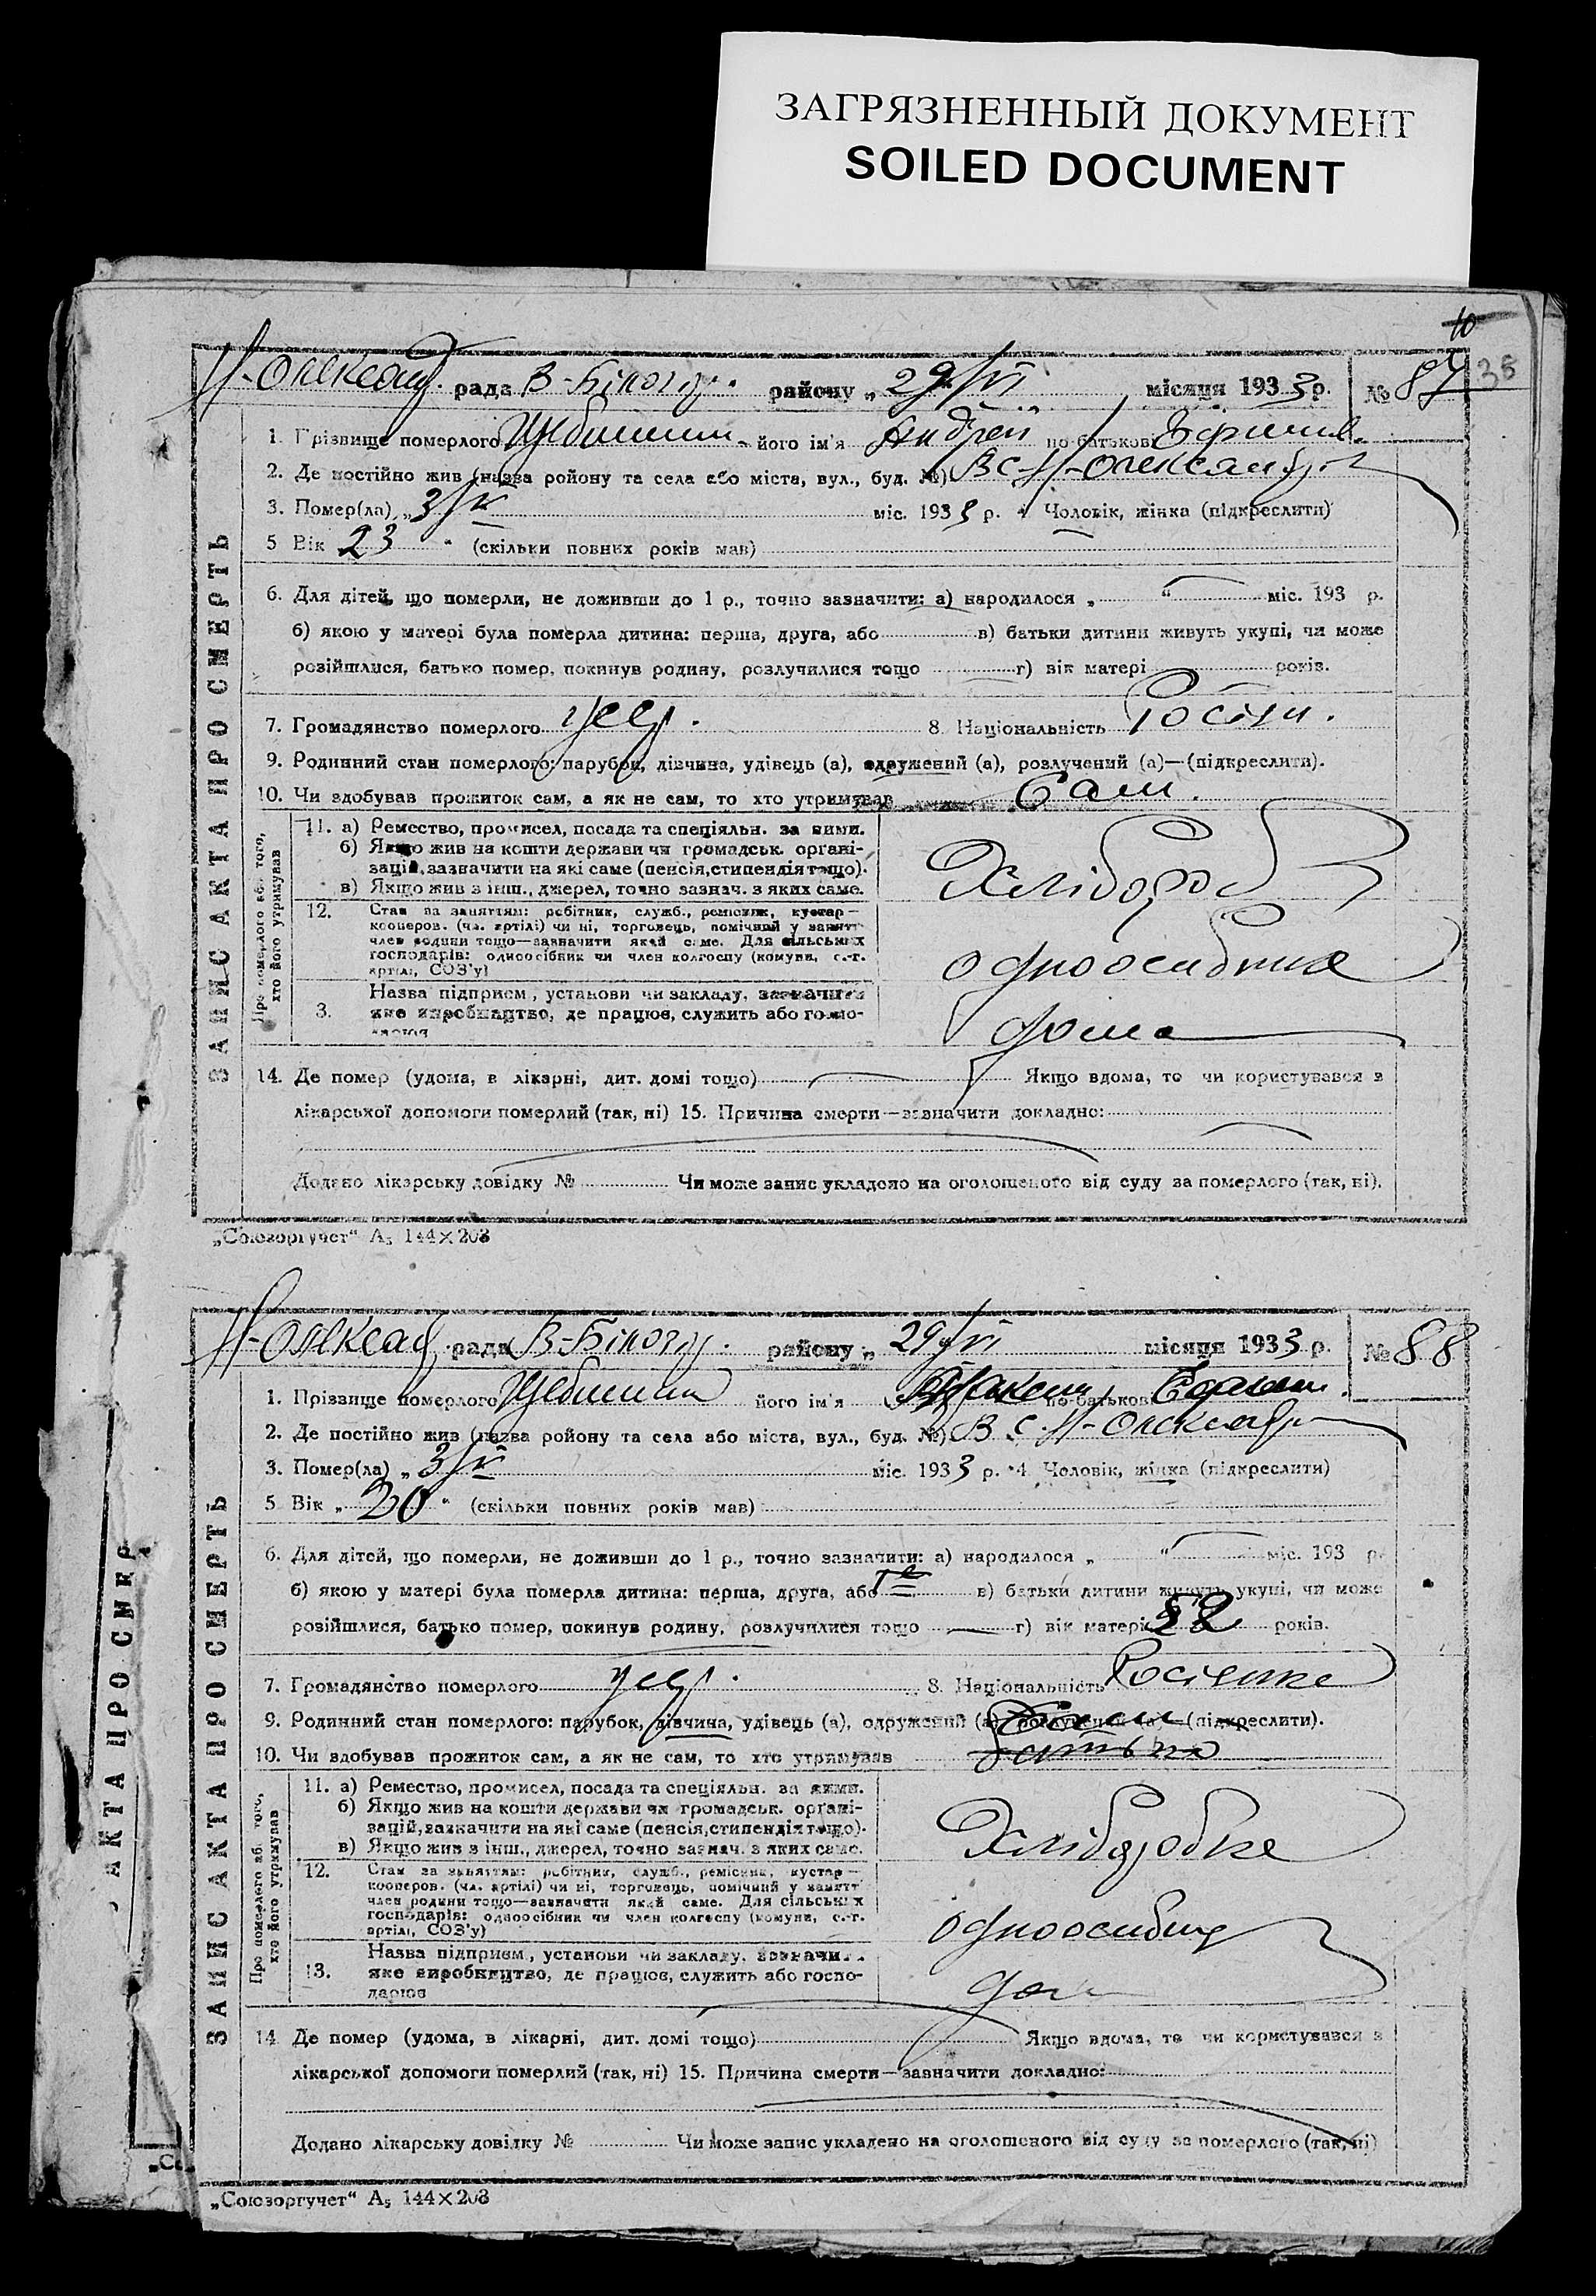 ЗАГРЯЗНЕННЫЙ ДОКУМЕНТ
SOILED DOCUMENT
10
35
Н-Олександ. рада В-Білозер. району „29/VI місяця 1933 р. № 87
1. Прізвище померлого його ім'я Андрей по-батькові
2. Де постійно жив (назва ройону та села або міста, вул., буд. №) В С. Н-Олександр.
3. Помер(ла) „3/V міс. 1933 р. 4 Чоловік, жінка (підкреслити)
5 Вік 23 " (скільки повних років мав)
6. Для дітей, що померли, не доживши до 1 р., точно зазначити: а) народилося „ “ міс. 193 р.
б) якою у матері була померла дитина: перша, друга, або в) батьки дитини живуть укупі, чи може
розійшлися, батько помер, покинув родину, розлучилися тощо г) вік матері років.
7. Громадянство померлого УССР. 8. Національність Росіян.
9. Родинний стан померлого: парубок, дівчина, удівець (а), одружений (а), розлучений (а)—(підкреслити).
10. Чи здобував прожиток сам, а як не сам, то хто утримував Сам.
ЗАПИС АКТА ПРО СМЕРТЬ
Про померлого або того, хто його утримував
11. а) Ремество, промисел, посада та спеціяльн. за якими.
б) Якщо жив на кошти держави чи громадськ. органі-
зацій, зазначити на які саме (пенсія, стипендія тощо).
в) Якщо жив з інш., джерел, точно зазнач. з яких саме.
Хлібороб
12. Стан за заняттям: робітник, служб., ремісник, кустар—
кооперов. (чл. артілі) чи ні, торговець, помічний у занятт
член родини тощо—зазначити який саме. Для сільських
господарів: одноосібник чи член колгоспу (комуни, с.-г.
артілі, СОЗ'у)
одноосибник
3. Назва підприєм., установи чи закладу, зазначити
яке виробництво, де працює, служить або госпо-
дарює
дома
14. Де помер (удома, в лікарні, дит. домі тощо) Якщо вдома, то чи користувався з
лікарської допомоги померлий (так, ні) 15. Причина смерти—зазначити докладно:
Додано лікарську довідку № Чи може запис укладено на оголошеного від суду за померлого (так, ні).
„Союзоргучет“ А5 144×203
Н-Олександ. рада В-Білозер. району „ 29/VI місяця 1933 р. № 88
1. Прізвище померлого його ім'я по-батькові
2. Де постійно жив (назва ройону та села або міста, вул., буд. №) В С. Н-Олександр
3. Помер(ла) „ 3/V міс. 1933 р. 4 Чоловік, жінка (підкреслити)
5 Вік „ 20 " (скільки повних років мав)
6. Для дітей, що померли, не доживши до 1 р., точно зазначити: а) народилося „ “ міс. 193 р.
б) якою у матері була померла дитина: перша, друга, або в) батьки дитини живуть укупі, чи може
розійшлися, батько помер, покинув родину, розлучилися тощо г) вік матері 52 років.
7. Громадянство померлого УССР. 8. Національність Росіянка
9. Родинний стан померлого: парубок, дівчина, удівець (а), одружений (а) розлучений (а)—(підкреслити).
10. Чи здобував прожиток сам, а як не сам, то хто утримував
ЗАПИС АКТА ПРО СМЕРТЬ
Про померлого або того, хто його утримував
11. а) Ремество, промисел, посада та спеціяльн. за якими.
б) Якщо жив на кошти держави чи громадськ. органі-
зацій, зазначити на які саме (пенсія, стипендія тощо).
в) Якщо жив з інш., джерел, точно зазнач. з яких саме.
Хліборобка
12. Стан за заняттям: робітник, служб., ремісник, кустар—
кооперов. (чл. артілі) чи ні, торговець, помічний у занятт
член родини тощо—зазначити який саме. Для сільських
господарів: одноосібник чи член колгоспу (комуни, с.-г.
артілі, СОЗ'у)
одноосибниц
13. Назва підприєм., установи чи закладу, зазначи
яке виробництво, де працює, служить або госпо-
дарює
14. Де помер (удома, в лікарні, дит. домі тощо) Якщо вдома, то чи користувався з
лікарської допомоги померлий (так, ні) 15. Причина смерти—зазначити докладно:
Додано лікарську довідку № Чи може запис укладено на оголошеного від суду за померлого (так, ні)
„Союзоргучет“ А5 144×203
АКТА ПРО СМЕР
„Со